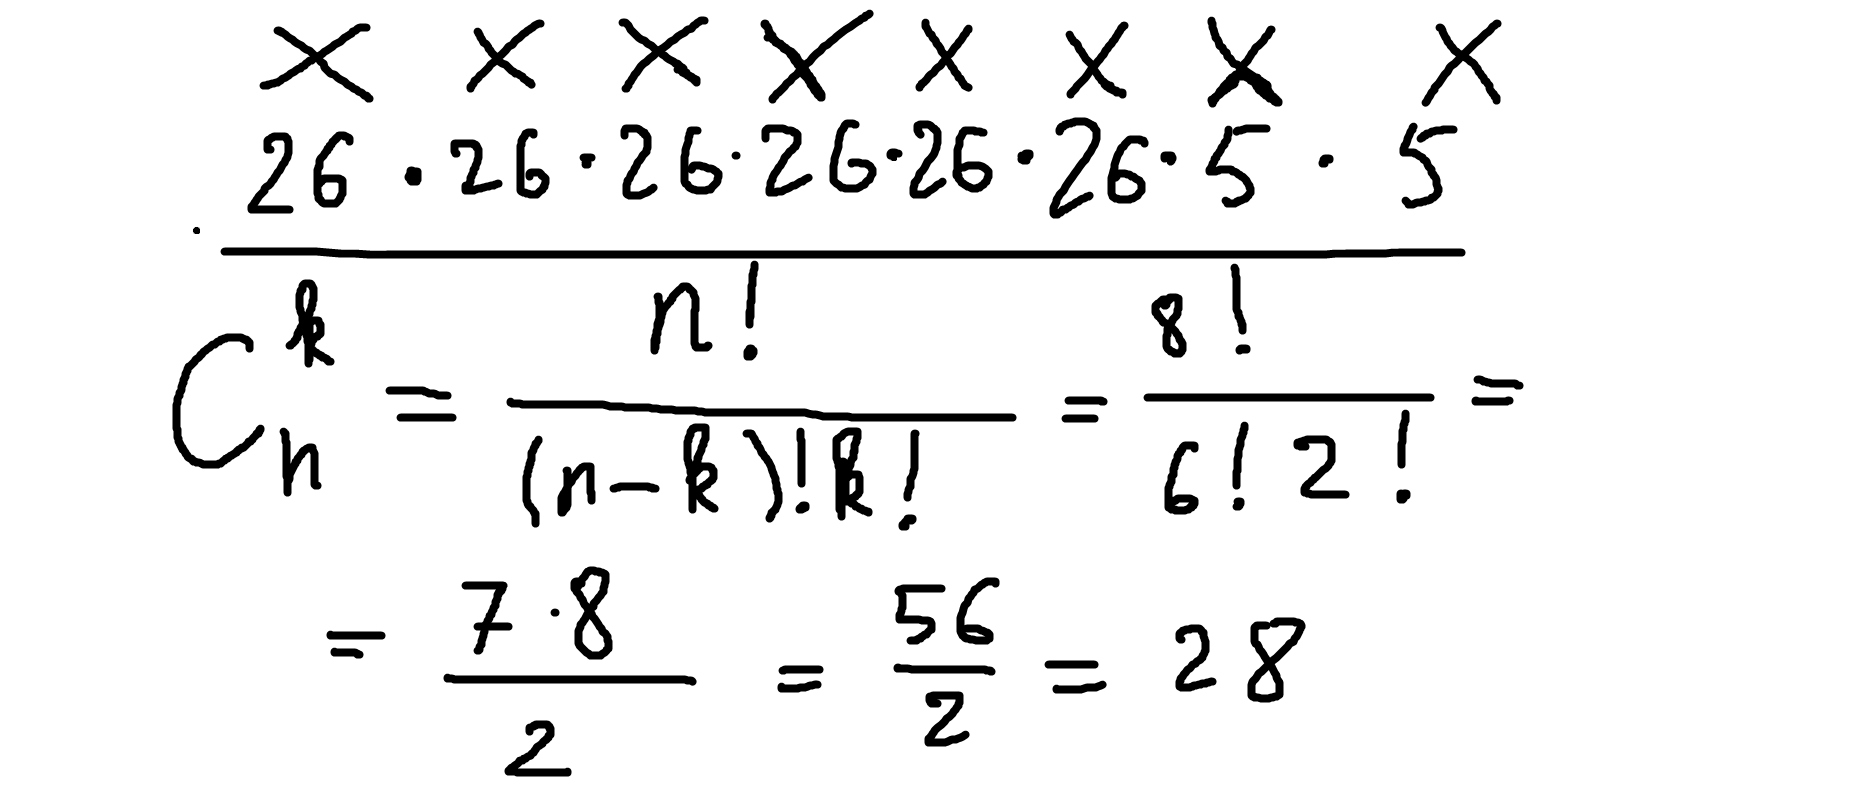 × × × × × × × ×
26 · 26 · 26 · 26 · 26 · 26 · 5 · 5
C_n^k = n! / (n-k)! k! = 8! / 6! 2! =
= 7·8 / 2 = 56 / 2 = 28